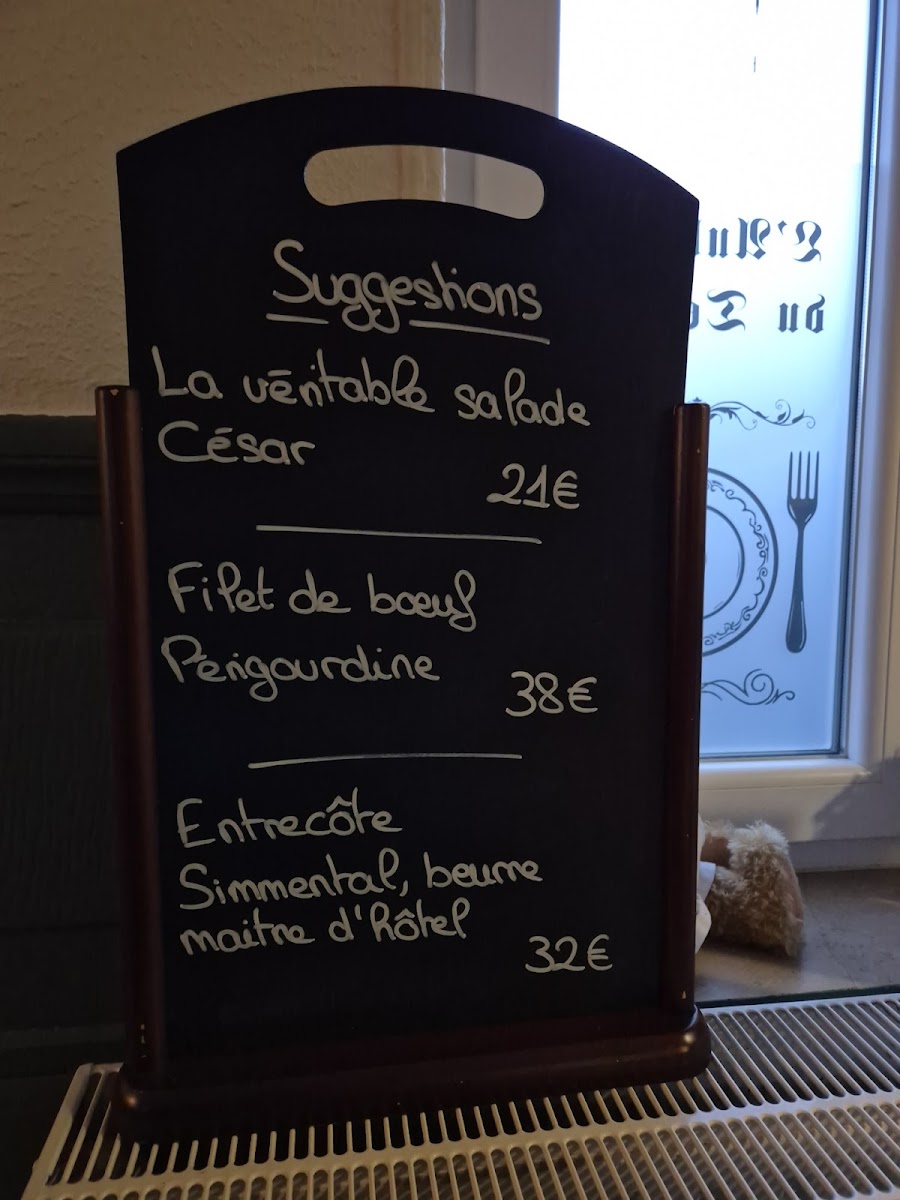 Suggestions
La véritable salade
César
21€
Filet de bœuf
Périgourdine
38€
Entrecôte
Simmental, beurre
maitre d'hôtel
32€
du